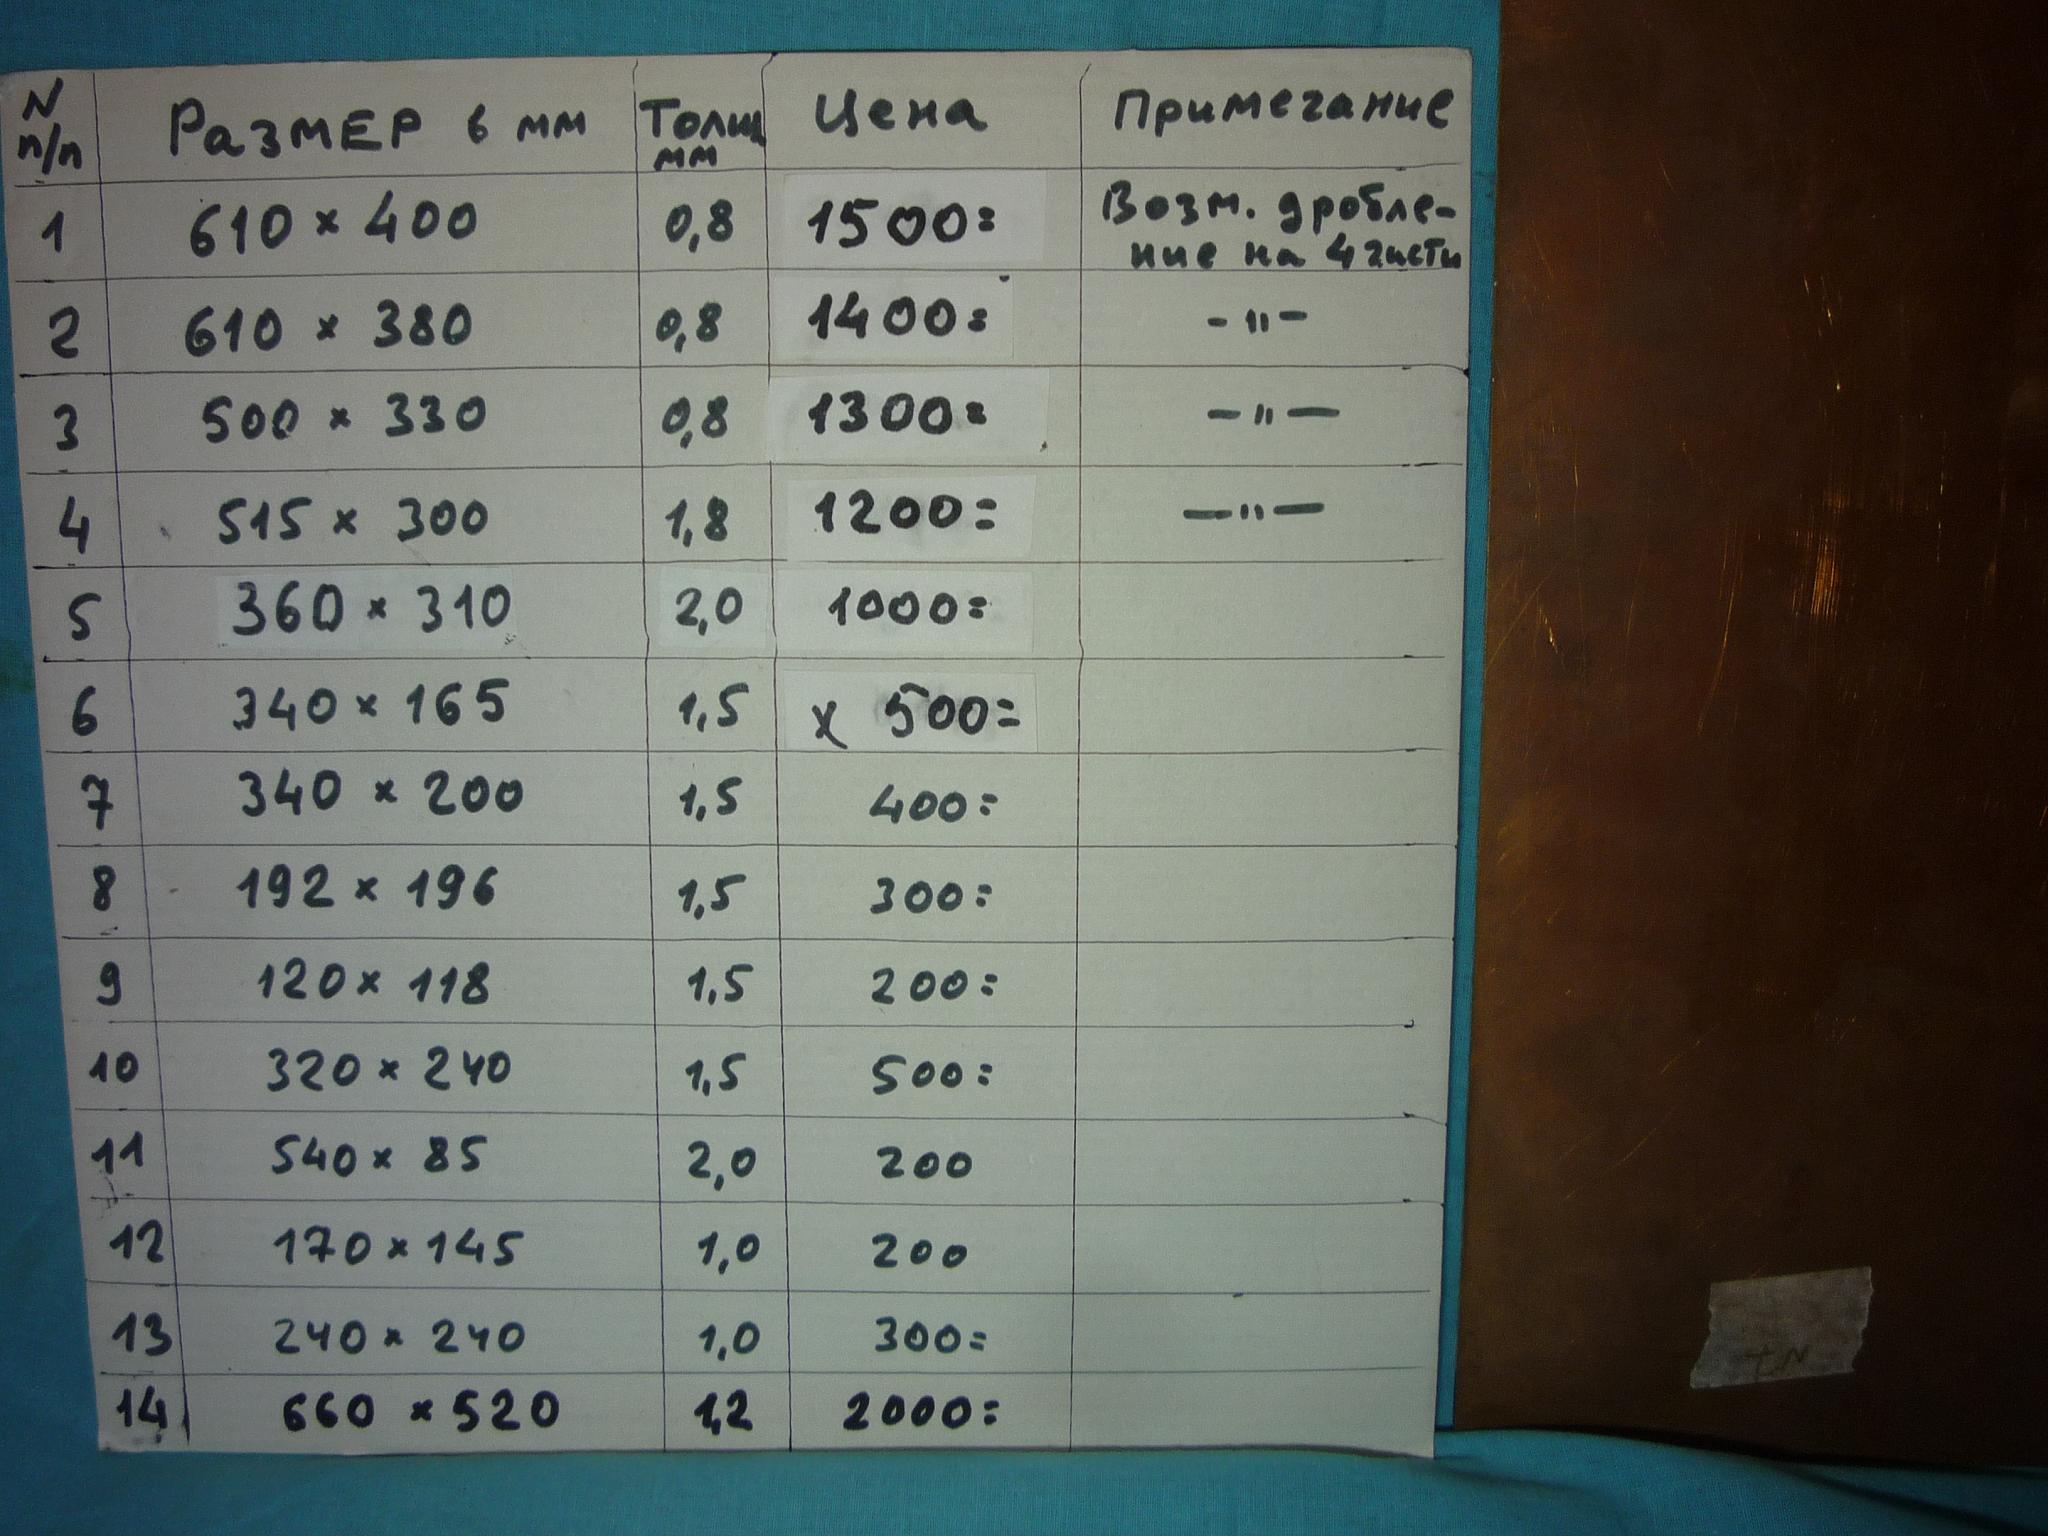 N п/п Размер в мм Толщ мм Цена Примечание
1 610 × 400 0,8 1500= Возм. дробле-
ние на 4 части
2 610 × 380 0,8 1400= - " -
3 500 × 330 0,8 1300= - " -
4 515 × 300 1,8 1200= - " -
5 360 × 310 2,0 1000=
6 340 × 165 1,5 х 500=
7 340 × 200 1,5 400=
8 192 × 196 1,5 300=
9 120 × 118 1,5 200=
10 320 × 240 1,5 500=
11 540 × 85 2,0 200
12 170 × 145 1,0 200
13 240 × 240 1,0 300=
14 660 × 520 1,2 2000=